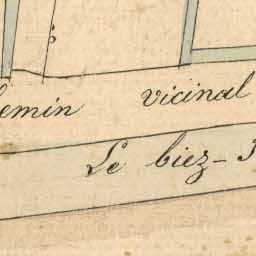 emin vicinal
Le biez-